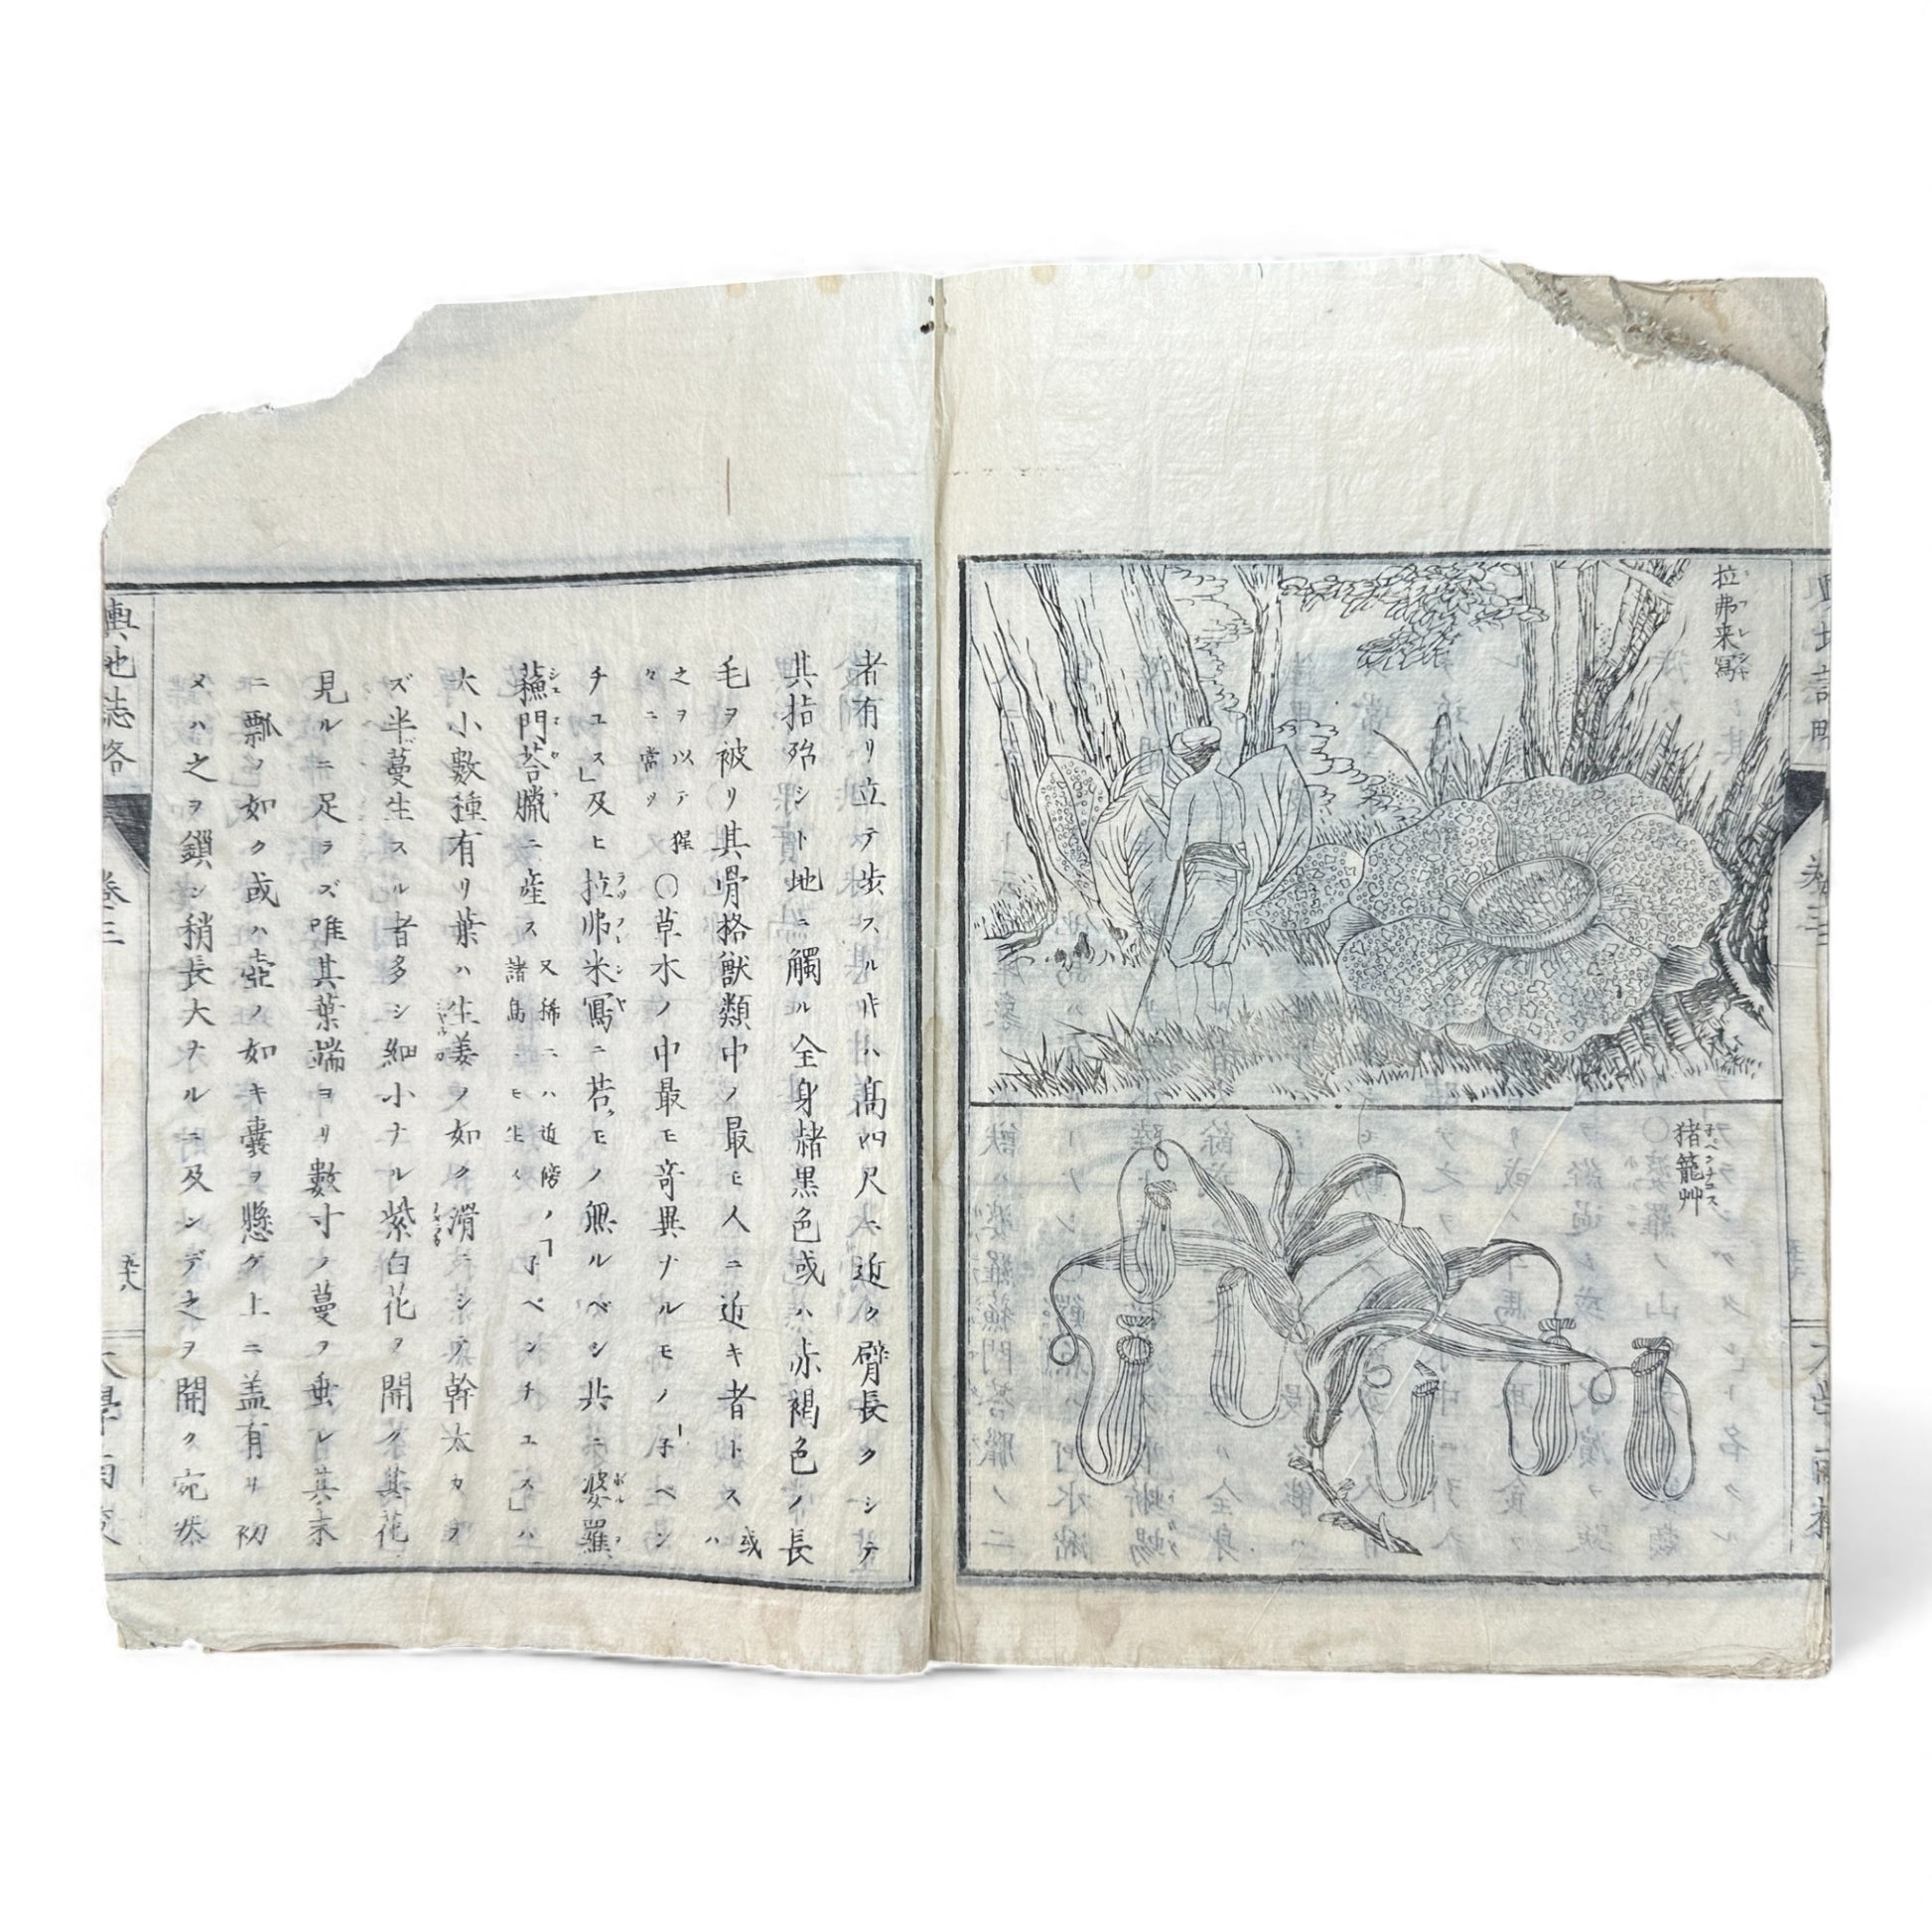 拉弗来寫
猪籠艸
者有リ立テ歩スル𪜈ハ高四尺ニ近ク臂長クシテ
其指殆シト地ニ觸ル全身赭黒色或ハ赤褐色ノ長
毛ヲ被リ其骨格獣類中ノ最モ人ニ近キ者トス或ハ
之ヲ以テ猩
々ニ當ツ
○草木ノ中最モ奇異ナルモノ「子ペン
チユス」及ヒ拉弗来寫ニ若クモノ無ルベシ共ニ婆羅
蘓門荅臘ニ産ス又稀ニハ近傍ノ
諸島ニモ生ス
「子ペンチユス」ハ
大小數種有リ葉ハ生姜ノ如ク滑ニシテ幹太カラ
ズ半蔓生スル者多シ細小ナル紫白花ヲ開ク其花
見ルニ足ラズ唯其葉端ヨリ數寸ノ蔓ヲ垂レ其末
ニ瓢ノ如ク或ハ壺ノ如キ嚢ヲ懸ク上ニ盖有リ初
メハ之ヲ鎖シ稍長大ナルニ及ンデ之ヲ開ク宛然
輿地誌略
卷三